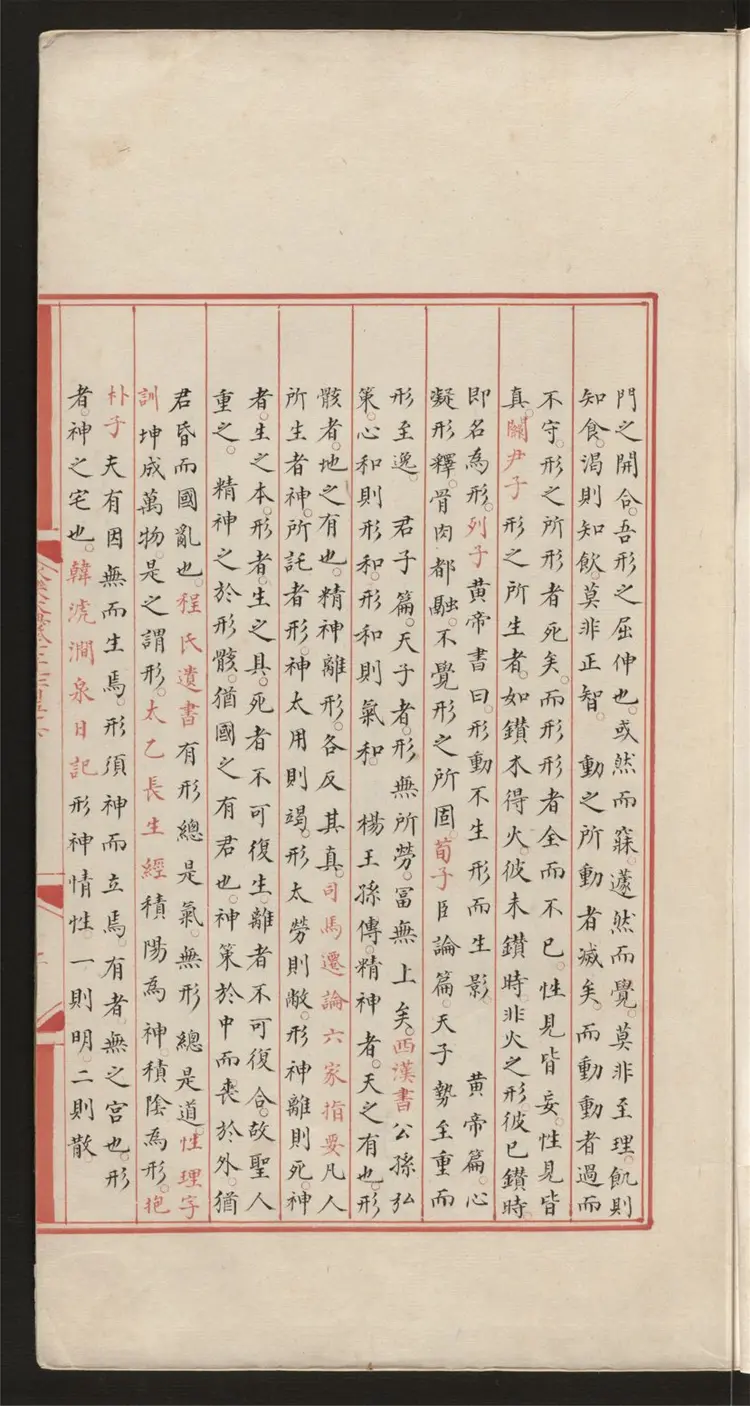 門之開合。吾形之屈伸也。或然而寐。蘧然而覺。莫非至理。飢則
知食。渴則知飲。莫非正智。動之所動者滅矣。而動動者過而
不守。形之所形者死矣。而形形者全而不已。性見皆妄。性見皆
真。關尹子形之所生者。如鑽木得火。彼未鑽時。非火之形。彼已鑽時。
即名為形。列子黃帝書曰。形動不生形而生影。黃帝篇。心
凝形釋。骨肉都融。不覺形之所固。荀子臣論篇。天子勢至重而
形至逸。君子篇。天子者。形無所勞。富無上矣。西漢書公孫弘
策。心和則形和。形和則氣和。楊王孫傳。精神者。天之有也。形
骸者。地之有也。精神離形。各反其真。司馬遷論六家指要凡人
所生者神。所託者形。神太用則竭。形太勞則敝。形神離則死。神
者。生之本。形者。生之具。死者不可復生。離者不可復合。故聖人
重之。精神之於形骸。猶國之有君也。神策於中而喪於外。猶
君昏而國亂也。程氏遺書有形總是氣。無形總是道。性理字
訓坤成萬物。是之謂形。太乙長生經積陽為神積陰為形。抱
朴子夫有因無而生焉。形須神而立焉。有者。無之宮也。形
者。神之宅也。韓淲澗泉日記形神情性。一則明。二則散。